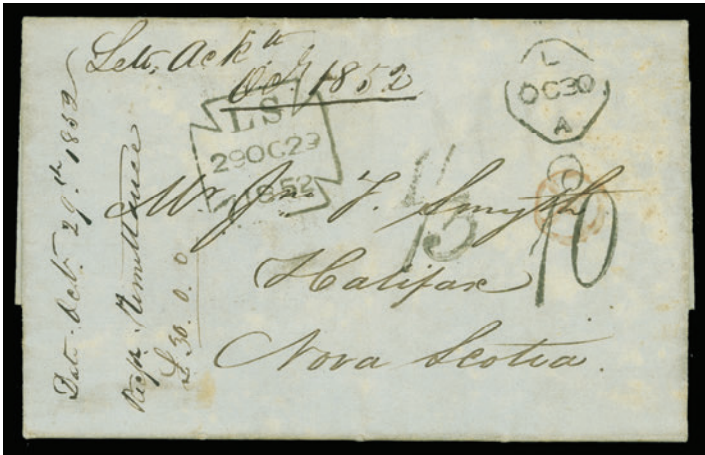 Lett, Ack th
Oct 1852
L
OC30
A
LS
29OC29
1852
Mr Jno T. Smyth
Halifax
Nova Scotia.
1/3
10
Date Oct. 29th 1852
Recpt Remittance
£30.0.0